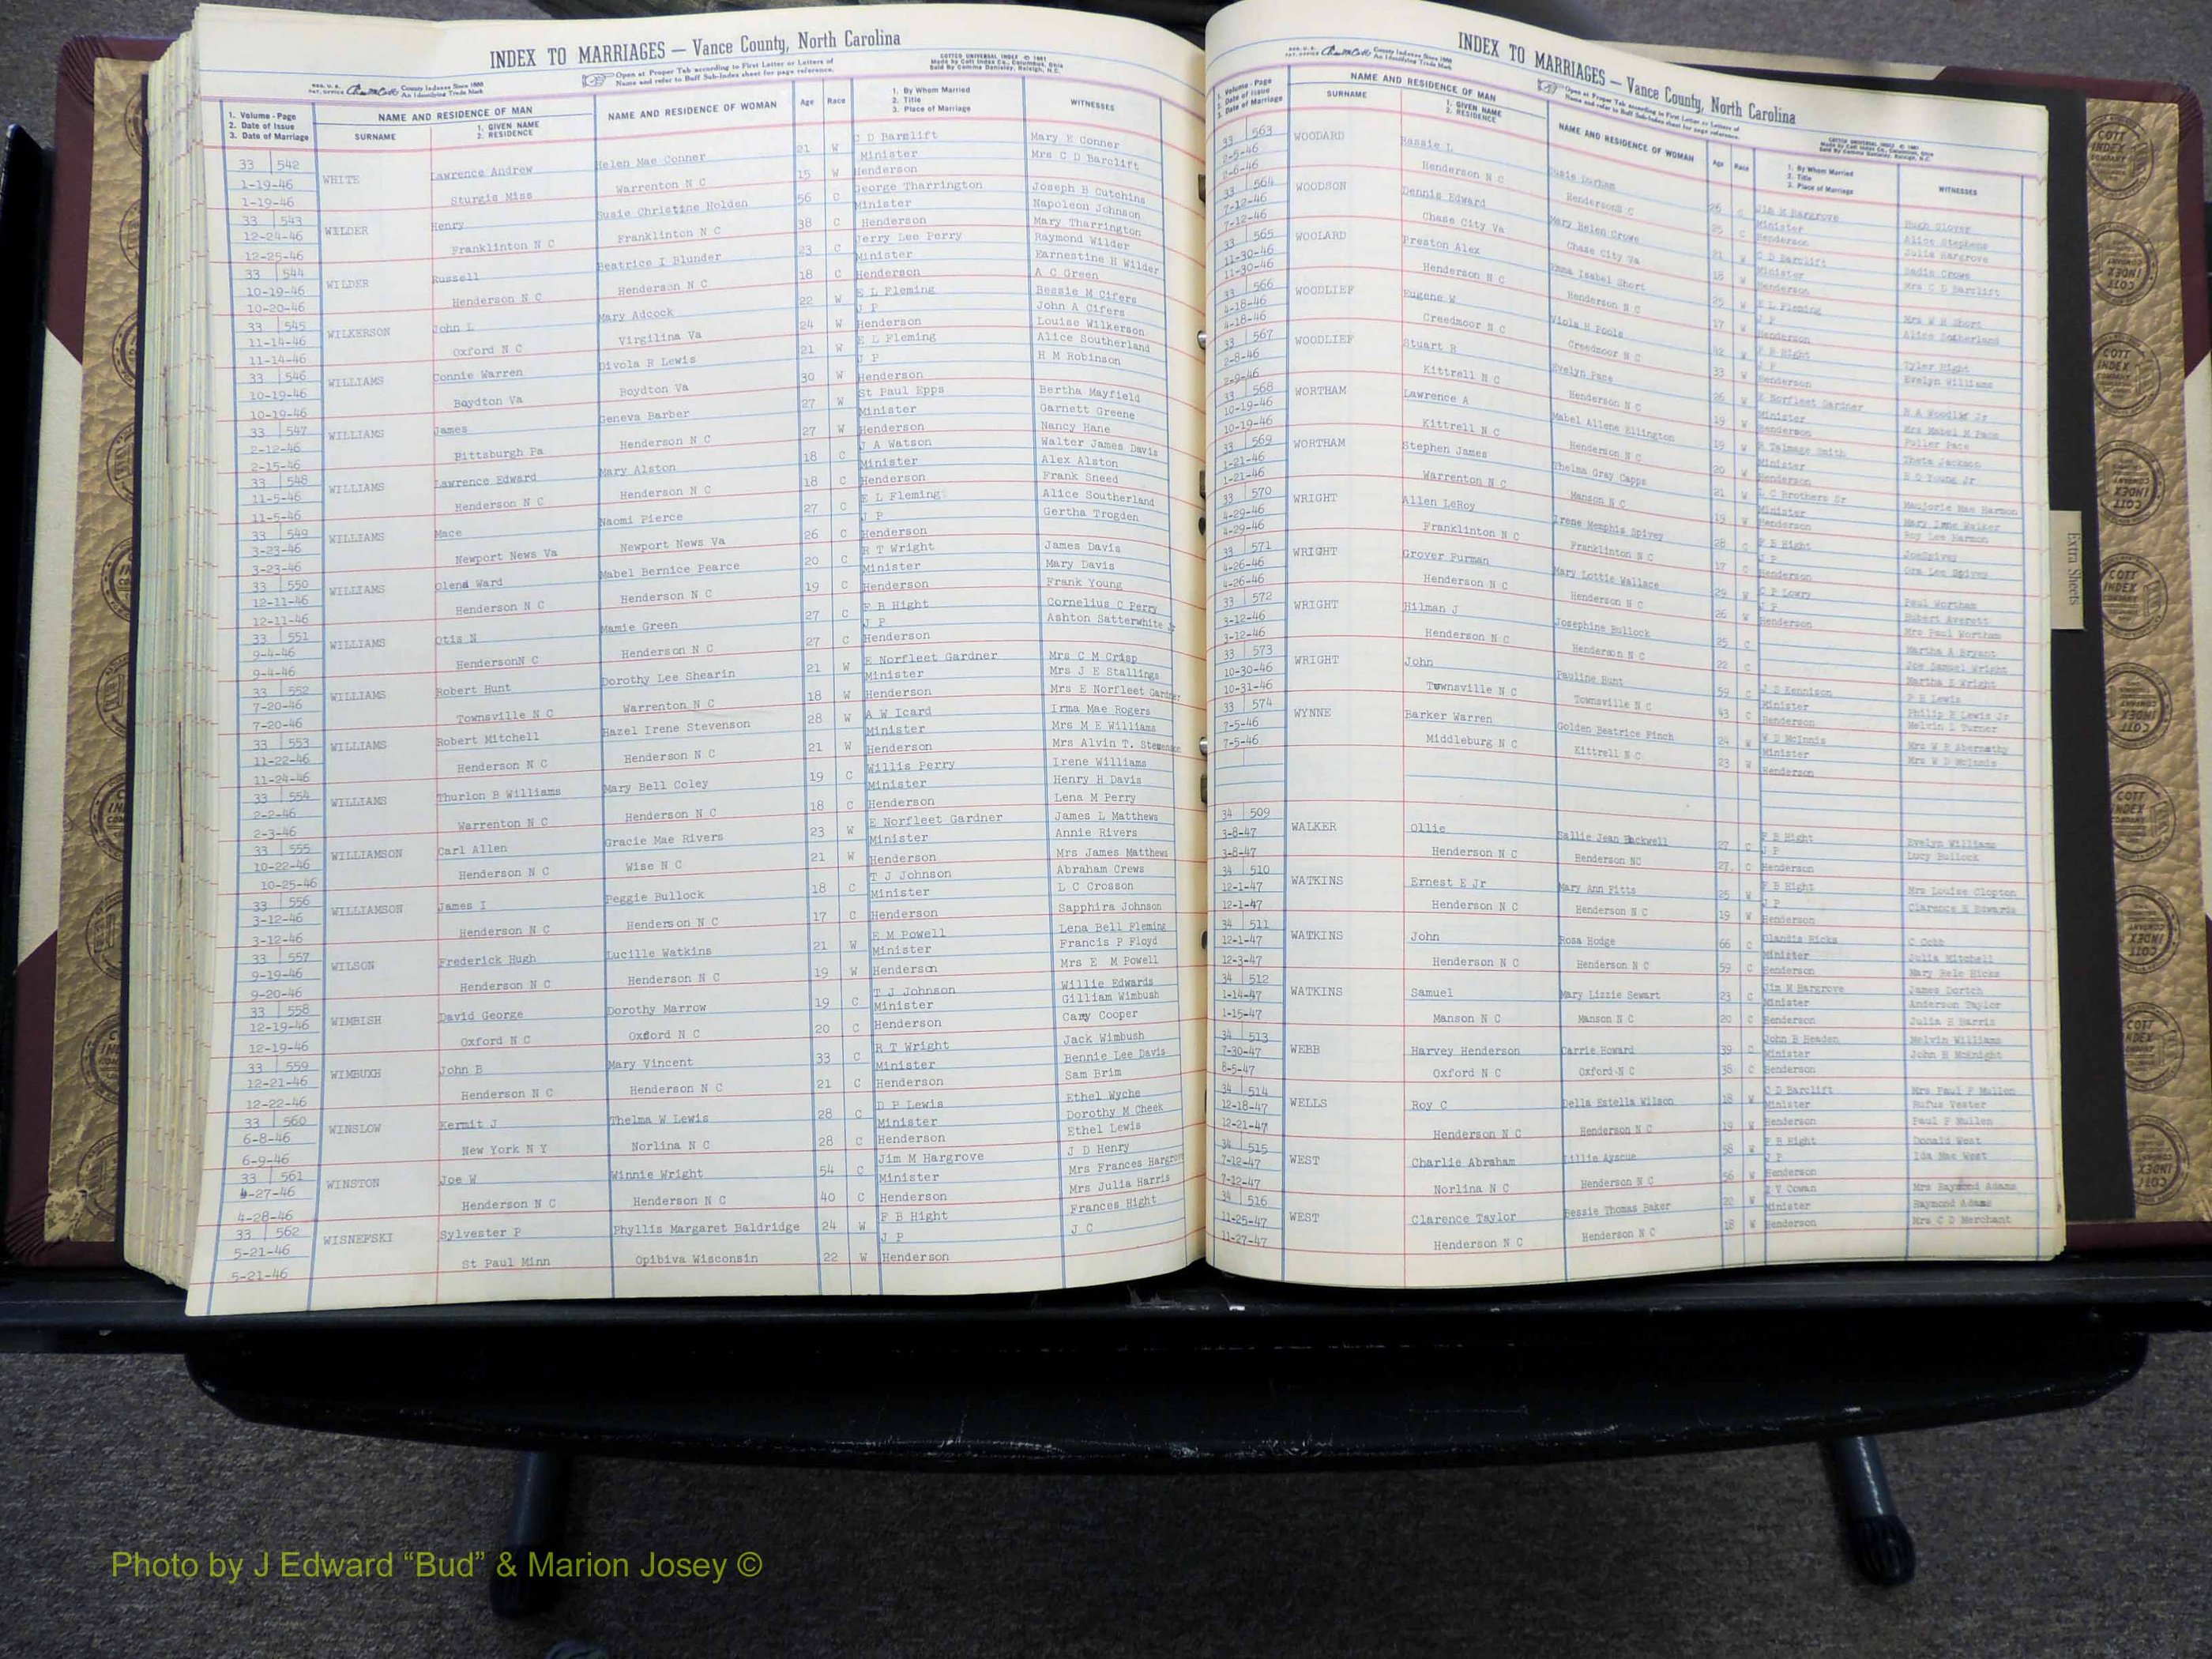 INDEX TO MARRIAGES — Vance County, North Carolina
REG. U. S. PAT. OFFICE County Indexes Since 1888 An Identifying Trade Mark
Open at Proper Tab according to First Letter or Letters of Name and refer to Buff Sub-Index sheet for page reference.
COTTCO UNIVERSAL INDEX © 1961 Made by Cott Index Co., Columbus, Ohio
1. Volume - Page 2. Date of Issue 3. Date of Marriage
NAME AND RESIDENCE OF MAN
SURNAME 1. GIVEN NAME 2. RESIDENCE
NAME AND RESIDENCE OF WOMAN
Age Race
1. By Whom Married 2. Title 3. Place of Marriage
WITNESSES
33 542 1-19-46 1-19-46 WHITE Lawrence Andrew Sturgis Miss Helen Mae Conner Warrenton N C 21 W 15 W C D Barclift Minister Henderson Mary E Conner Mrs C D Barclift
33 543 12-24-46 12-25-46 WILDER Henry Franklinton N C Susie Christine Holden Franklinton N C 56 C 38 C George Tharrington Minister Henderson Joseph B Cutchins Napoleon Johnson Mary Tharrington
33 544 10-19-46 10-20-46 WILDER Russell Henderson N C Beatrice I Blunder Henderson N C 23 C 18 C Jerry Lee Perry Minister Henderson Raymond Wilder Earnestine H Wilder A C Green
33 545 11-14-46 11-14-46 WILKERSON John L Oxford N C Mary Adcock Virgilina Va 22 W 24 W E L Fleming J P Henderson Bessie M Cifers John A Cifers Louise Wilkerson
33 546 10-19-46 10-19-46 WILLIAMS Connie Warren Boydton Va Divola R Lewis Boydton Va 21 W 30 W E L Fleming J P Henderson Alice Southerland H M Robinson
33 547 2-12-46 2-15-46 WILLIAMS James Pittsburgh Pa Geneva Barber Henderson N C 27 W 27 W St Paul Epps Minister Henderson Bertha Mayfield Garnett Greene Nancy Hane
33 548 11-5-46 11-5-46 WILLIAMS Lawrence Edward Henderson N C Mary Alston Henderson N C 18 C 18 C J A Watson Minister Henderson Walter James Davis Alex Alston Frank Sneed
33 549 3-23-46 3-23-46 WILLIAMS Mace Newport News Va Naomi Pierce Newport News Va 27 C 26 C E L Fleming J P Henderson Alice Southerland Gertha Trogden
33 550 12-11-46 12-11-46 WILLIAMS Olend Ward Henderson N C Mabel Bernice Pearce Henderson N C 20 C 19 C R T Wright Minister Henderson James Davis Mary Davis Frank Young
33 551 9-4-46 9-4-46 WILLIAMS Otis N HendersonN C Mamie Green Henderson N C 27 C 27 C F B Hight J P Henderson Cornelius C Perry Ashton Satterwhite Jr
33 552 7-20-46 7-20-46 WILLIAMS Robert Hunt Townsville N C Dorothy Lee Shearin Warrenton N C 21 W 18 W E Norfleet Gardner Minister Henderson Mrs C M Crisp Mrs J E Stallings Mrs E Norfleet Gardner
33 553 11-22-46 11-24-46 WILLIAMS Robert Mitchell Henderson N C Hazel Irene Stevenson Henderson N C 28 W 21 W A W Icard Minister Henderson Irma Mae Rogers Mrs M E Williams Mrs Alvin T. Stevenson
33 554 2-2-46 2-3-46 WILLIAMS Thurlon B Williams Warrenton N C Mary Bell Coley Henderson N C 19 C 18 C Willis Perry Minister Henderson Irene Williams Henry H Davis Lena M Perry
33 555 10-22-46 10-25-46 WILLIAMSON Carl Allen Henderson N C Gracie Mae Rivers Wise N C 23 W 21 W E Norfleet Gardner Minister Henderson James L Matthews Annie Rivers Mrs James Matthews
33 556 3-12-46 3-12-46 WILLIAMSON James I Henderson N C Peggie Bullock Henderson N C 18 C 17 C T J Johnson Minister Henderson Abraham Crews L C Crosson Sapphira Johnson
33 557 9-19-46 9-20-46 WILSON Frederick Hugh Henderson N C Lucille Watkins Henderson N C 21 W 19 W E M Powell Minister Henderson Lena Bell Fleming Francis P Floyd Mrs E M Powell
33 558 12-19-46 12-19-46 WIMBISH David George Oxford N C Dorothy Marrow Oxford N C 19 C 20 C T J Johnson Minister Henderson Willie Edwards Gilliam Wimbush Cary Cooper
33 559 12-21-46 12-22-46 WIMBUXH John B Henderson N C Mary Vincent Henderson N C 33 C 21 C R T Wright Minister Henderson Jack Wimbush Bennie Lee Davis Sam Brim
33 560 6-8-46 6-9-46 WINSLOW Kermit J New York N Y Thelma W Lewis Norlina N C 28 C 28 C D P Lewis Minister Henderson Ethel Wyche Dorothy M Cheek Ethel Lewis
33 561 4-27-46 4-28-46 WINSTON Joe W Henderson N C Winnie Wright Henderson N C 54 C 40 C Jim M Hargrove Minister Henderson J D Henry Mrs Frances Hargrove Mrs Julia Harris
33 562 5-21-46 5-21-46 WISNEFSKI Sylvester P St Paul Minn Phyllis Margaret Baldridge Opibiva Wisconsin 24 W 22 W F B Hight J P Henderson Frances Hight J C
INDEX TO MARRIAGES — Vance County, North Carolina
REG. U. S. PAT. OFFICE County Indexes Since 1888 An Identifying Trade Mark
Open at Proper Tab according to First Letter or Letters of Name and refer to Buff Sub-Index sheet for page reference.
1. Volume - Page 2. Date of Issue 3. Date of Marriage
NAME AND RESIDENCE OF MAN
SURNAME 1. GIVEN NAME 2. RESIDENCE
NAME AND RESIDENCE OF WOMAN
Age Race
1. By Whom Married 2. Title 3. Place of Marriage
WITNESSES
33 563 2-5-46 2-6-46 WOODARD Hassie L Henderson N C Susie Durham HendersonN C 26 C 25 C Jim M Hargrove Minister Henderson Hugh Glover Alice Stephens Julia Hargrove
33 564 7-12-46 7-12-46 WOODSON Dennis Edward Chase City Va Mary Helen Crowe Chase City Va 21 W 18 W C D Barclift Minister Henderson Sadie Crowe Mrs C D Barclift
33 565 11-30-46 11-30-46 WOOLARD Preston Alex Henderson N C Emma Isabel Short Henderson N C 25 W 17 W E L Fleming J P Henderson Mrs W H Short Alice Sotherland
33 566 4-18-46 4-18-46 WOODLIEF Eugene W Creedmoor N C Viola H Poole Creedmoor N C 42 W 33 W F B Hight J P Henderson Tyler Hight Evelyn Williams
33 567 2-8-46 2-9-46 WOODLIEF Stuart R Kittrell N C Evelyn Pace Henderson N C 26 W 19 W E Norfleet Gardner Minister Henderson R A Woodlief Jr Mrs Mabel M Pace Fuller Pace
33 568 10-19-46 10-19-46 WORTHAM Lawrence A Kittrell N C Mabel Allene Ellington Henderson N C 19 W 20 W B Talmage Smith Minister Henderson Theta Jackson
33 569 1-21-46 1-21-46 WORTHAM Stephen James Warrenton N C Thelma Gray Capps Manson N C 21 W 19 W L C Brothers Sr Minister Henderson Maujorie Mae Harmon Mary Imne Walker Roy Lee Harmon
33 570 4-29-46 4-29-46 WRIGHT Allen LeRoy Franklinton N C Irene Memphis Spivey Franklinton N C 28 C 17 C F B Hight J P Henderson JoeSpivey Ora Lee Spivey
33 571 4-26-46 4-26-46 WRIGHT Grover Furman Henderson N C Mary Lottie Wallace Henderson N C 29 W 26 W C P Lowry J P Henderson Paul Wortham Robert Averett Mrs Paul Wortham
33 572 3-12-46 3-12-46 WRIGHT Hilman J Henderson N C Josephine Bullock Henderson N C 25 C 22 C Martha A Bryant Joe Samuel Wright Martha E Wright
33 573 10-30-46 10-31-46 WRIGHT John Townsville N C Pauline Hunt Townsville N C 59 C 43 C J S Kennison Minister Henderson P R Lewis Philip R Lewis Jr Melvin L Turner
33 574 7-5-46 7-5-46 WYNNE Barker Warren Middleburg N C Golden Beatrice Finch Kittrell N C 24 W 23 W W D McInnis Minister Henderson Mrs W B Abernathy Mrs W D McInnis
34 509 3-8-47 3-8-47 WALKER Ollie Henderson N C Sallie Jean Hackwell Henderson NC 27 C 27 C F B Hight J P Henderson Evelyn Williams Lucy Bullock
34 510 12-1-47 12-1-47 WATKINS Ernest E Jr Henderson N C Mary Ann Fitts Henderson N C 25 W 19 W F B Hight J P Henderson Mrs Louise Clopton Clarence E Edwards
34 511 12-1-47 12-3-47 WATKINS John Henderson N C Rosa Hodge Henderson N C 66 C 59 C Olandis Hicks Minister Henderson C Cobb Julia Mitchell Mary Hele Hicks
34 512 1-14-47 1-15-47 WATKINS Samuel Manson N C Mary Lizzie Sewart Manson N C 23 C 20 C Jim M Hargrove Minister Henderson James Dortch Anderson Taylor Julia H Harris
34 513 7-30-47 8-5-47 WEBB Harvey Henderson Oxford N C Carrie Howard Oxford N C 39 C 38 C John B Headen Minister Henderson Melvin Williams John H McKnight
34 514 12-18-47 12-21-47 WELLS Roy C Henderson N C Della Estella Wilson Henderson N C 18 W 19 W C D Barclift Minister Henderson Mrs Paul F Mullen Rufus Vester Paul F Mullen
34 515 7-12-47 7-12-47 WEST Charlie Abraham Norlina N C Lillie Ayscue Henderson N C 58 W 56 W F B Hight J P Henderson Donald West Ida Mae West
34 516 11-25-47 11-27-47 WEST Clarence Taylor Henderson N C Bessie Thomas Baker Henderson N C 22 W 18 W Cowan Minister Henderson Mrs Raymond Adams Raymond Adams Mrs C D Merchant
Extra Sheets
COTT INDEX COMPANY
Photo by J Edward “Bud” & Marion Josey ©